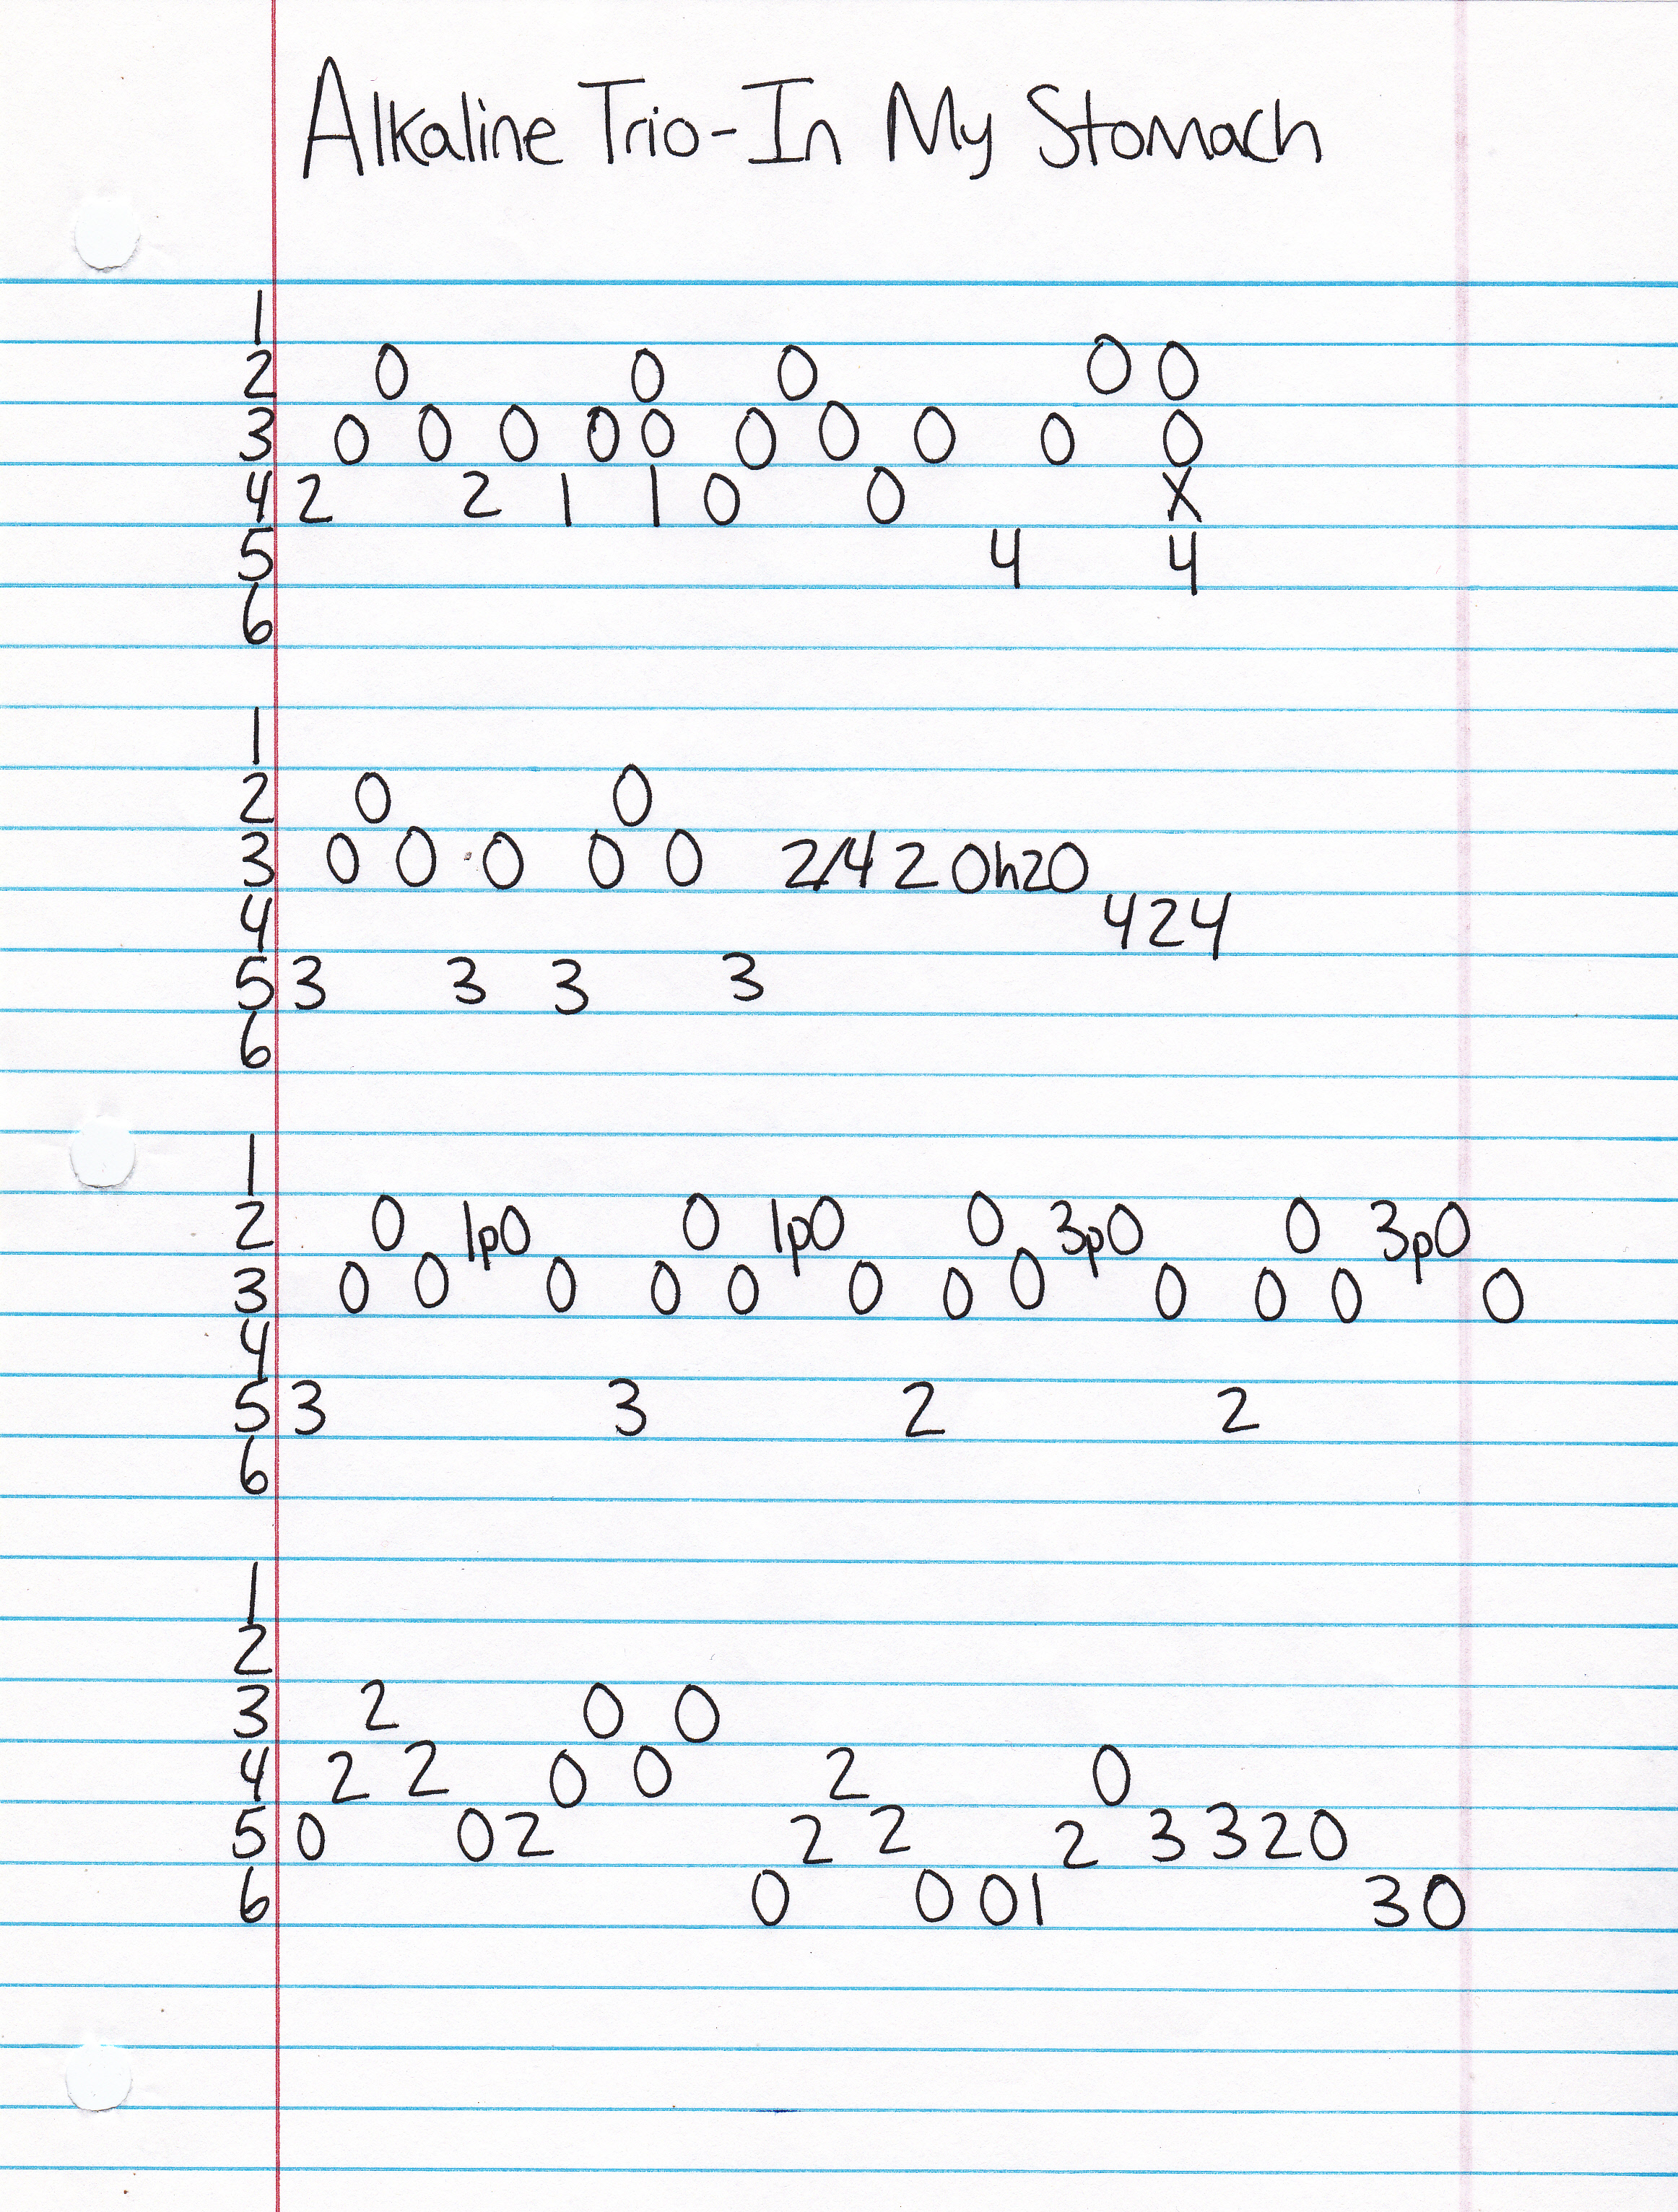 Alkaline Trio-In My Stomach
1
2 0 0 0 0 0
3 0 0 0 0 0 0 0 0 0 0
4 2 2 1 1 0 0 X
5 4 4
6
1
2 0 0
3 0 0 0 0 0 2/4 2 0h20
4 424
5 3 3 3 3
6
1
2 0 1p0 0 1p0 0 3p0 0 3p0
3 0 0 0 0 0 0 0 0 0 0 0 0
4
5 3 3 2 2
6
1
2
3 2 0 0
4 2 2 0 0 2 0
5 0 02 2 2 2 3 320
6 0 0 01 30